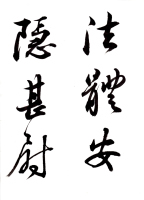 法體安
隱甚慰